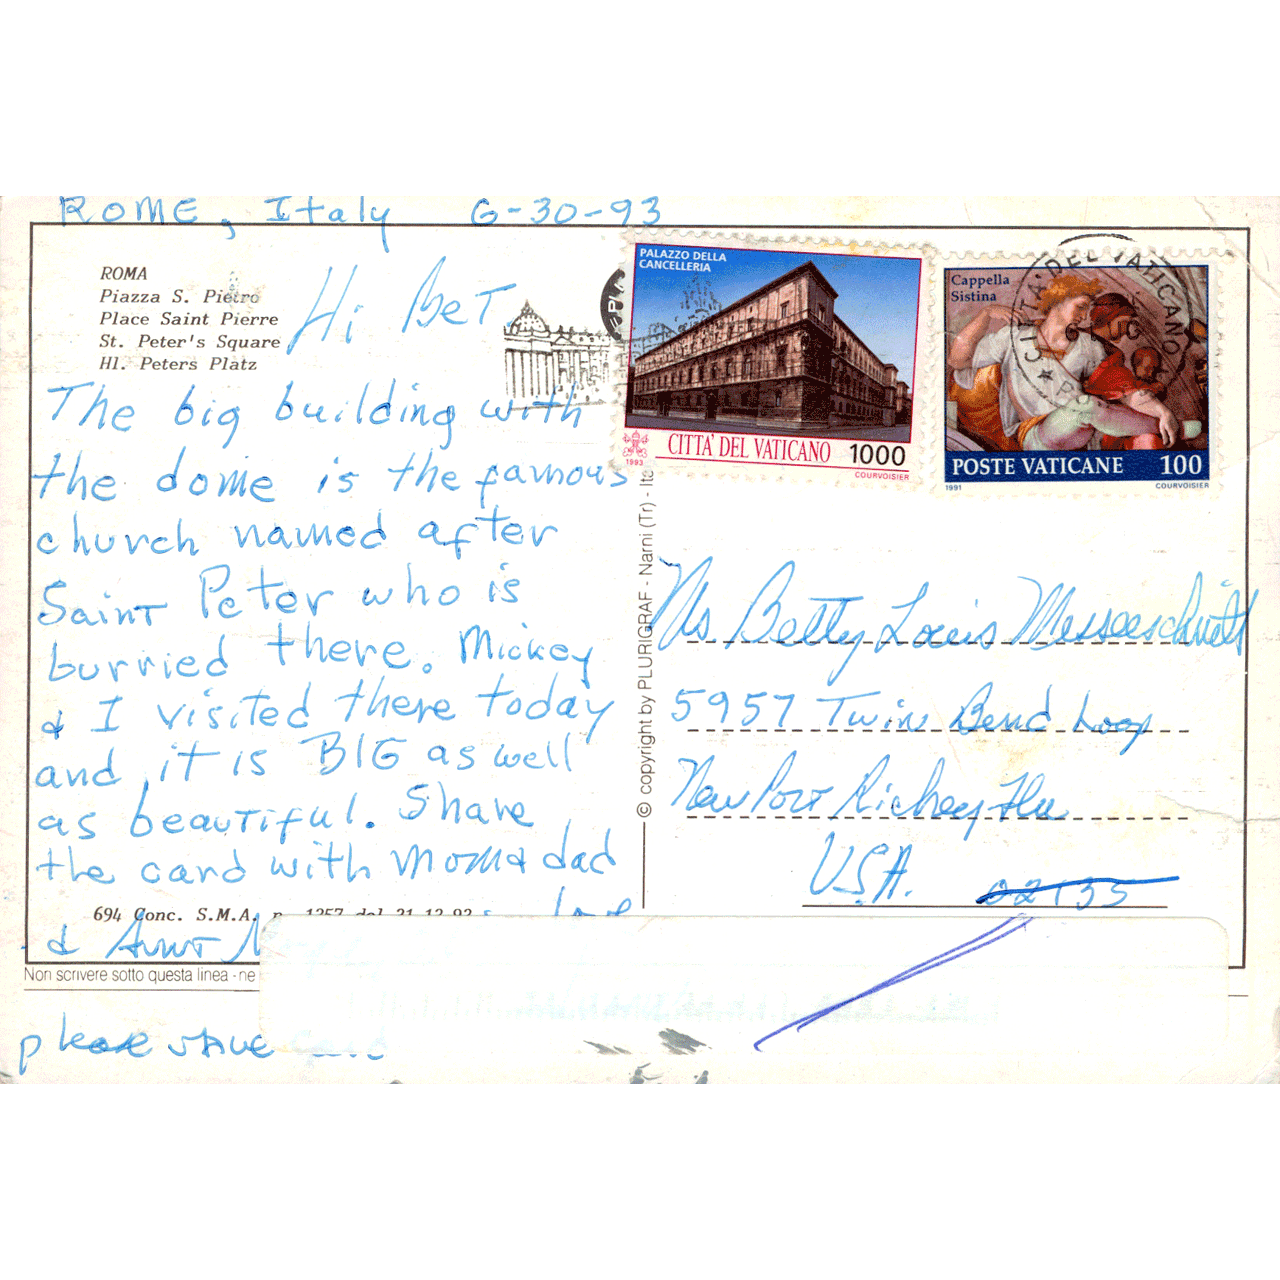 ROME, Italy 6-30-93
ROMA
Piazza S. Pietro
Place Saint Pierre
St. Peter's Square
Hl. Peters Platz
Hi Bet
The big building with
the dome is the famous
church named after
Saint Peter who is
burried there. Mickey
& I visited there today
and it is BIG as well
as beautiful. Share
the card with mom & dad
love
694 Conc. S.M.A. n. 1257 del 21.12.92
& Aunt
Non scrivere sotto questa linea - ne
please save card
© copyright by PLURIGRAF - Narni (Tr) - Ita
PALAZZO DELLA
CANCELLERIA
CITTA' DEL VATICANO 1000
1993 COURVOISIER
Cappella
Sistina
POSTE VATICANE 100
1991 COURVOISIER
CITTA' DEL VATICANO
Ms Betty Louis Messerschmitt
5957 Twin Bend Loop
New Port Richey Fla
U.S.A. 02135